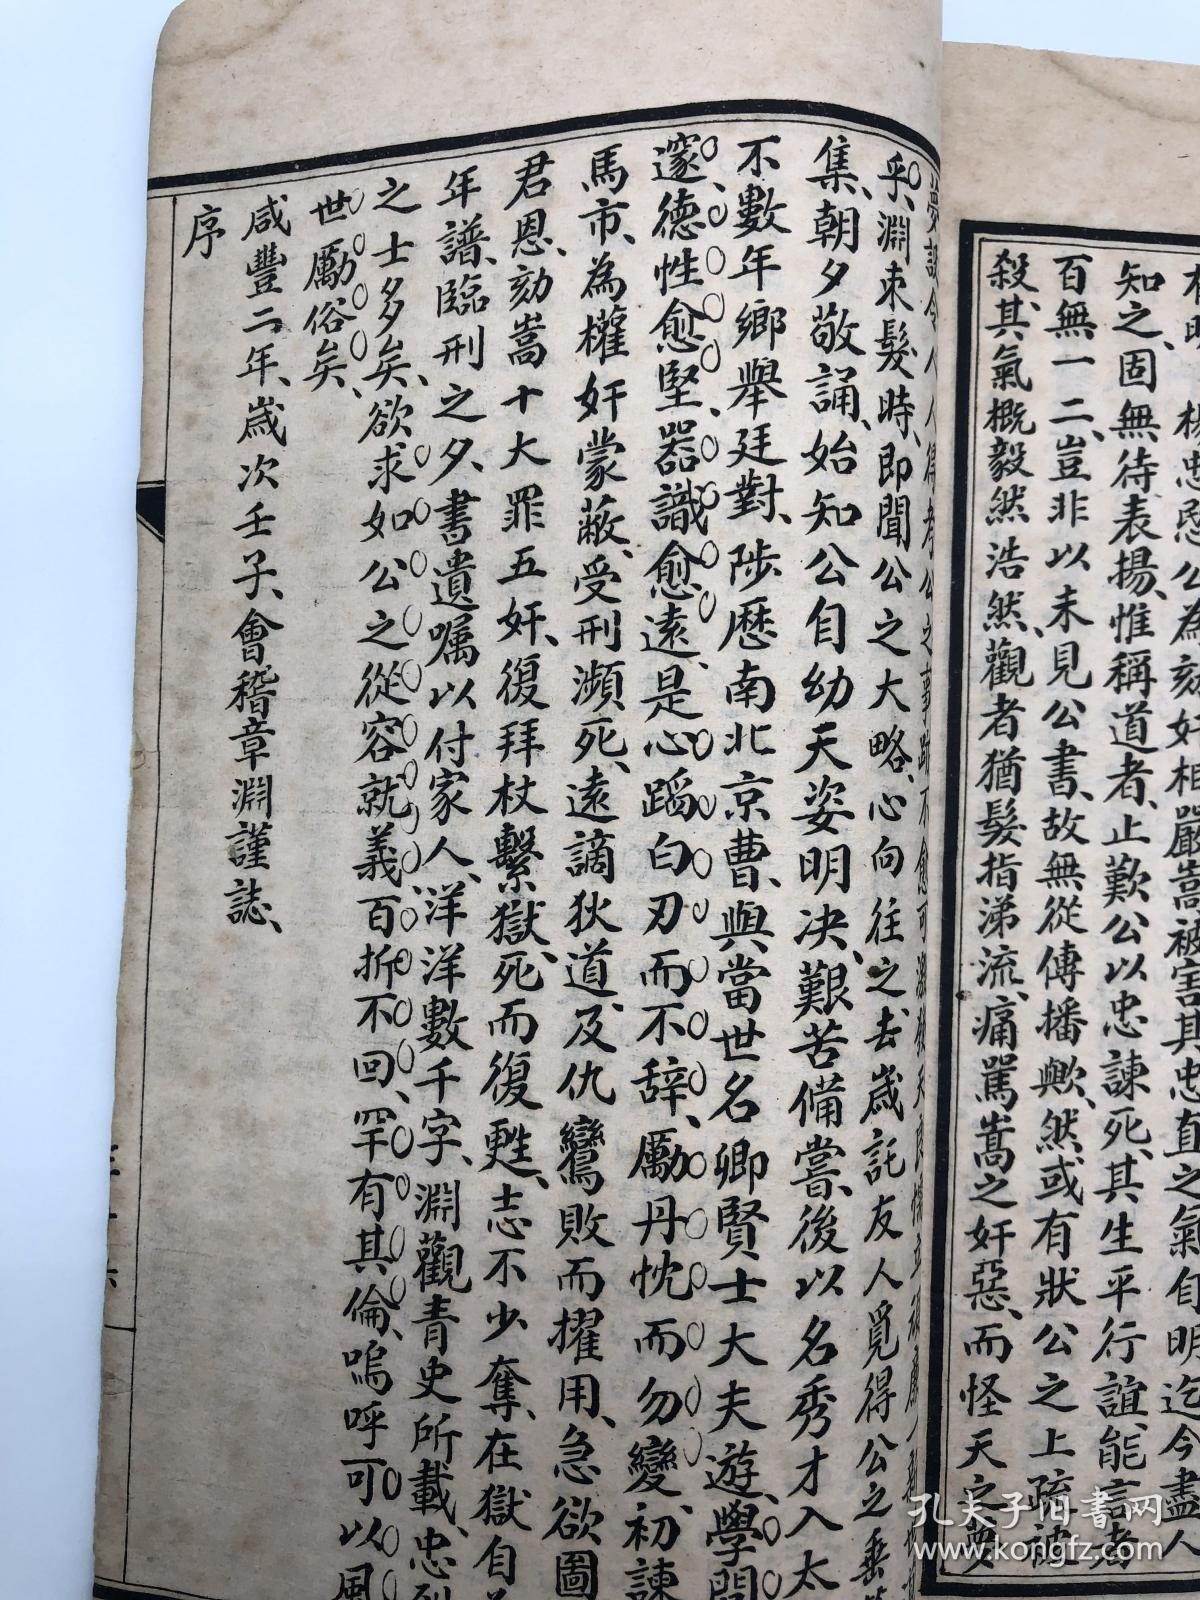 楊忠愍公為劾奸相嚴嵩被害其忠直之氣自明迄今盡人
知之、固無待表揚、惟稱道者、止歎公以忠諫死、其生平行誼、能言者
百無一二、豈非以未見公書、故無從傳播歟、然或有狀公之上疏被
殺、其氣概毅然浩然、觀者猶髮指涕流、痛罵嵩之奸惡、而怪天之
人人得
乎、淵束髮時、即聞公之大略、心向往之、去歲託友人覓得公之垂
集、朝夕敬誦、始知公自幼天姿明決、艱苦備嘗、後以名秀才入太
不數年鄉舉廷對、陟歷南北京曹、與當世名卿賢士大夫遊、學問
邃、德性愈堅、器識愈遠、是心蹈白刃而不辞、勵丹忱而勿變、初諫
馬市、為權奸蒙蔽、受刑瀕死、遠謫狄道、及仇鸞敗而擢用、急欲圖
君恩、劾嵩十大罪五奸、復拜杖繫獄、死而復甦、志不少奪、在獄自
年譜、臨刑之夕、書遺囑以付家人、洋洋數千字、淵觀青史所載、忠烈
之士多矣、欲求如公之從容就義百折不回、罕有其倫、嗚呼可以風
世勵俗矣、
咸豐二年、歲次壬子、會稽章淵謹誌、
序
孔夫子旧书网
www.kongfz.com